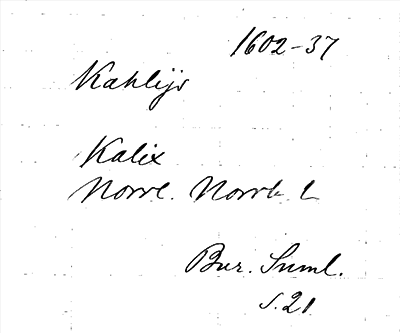 1602-37
Kahlijs
Kalix
Norrl. Norrb. l
Bur. Suml.
s. 21